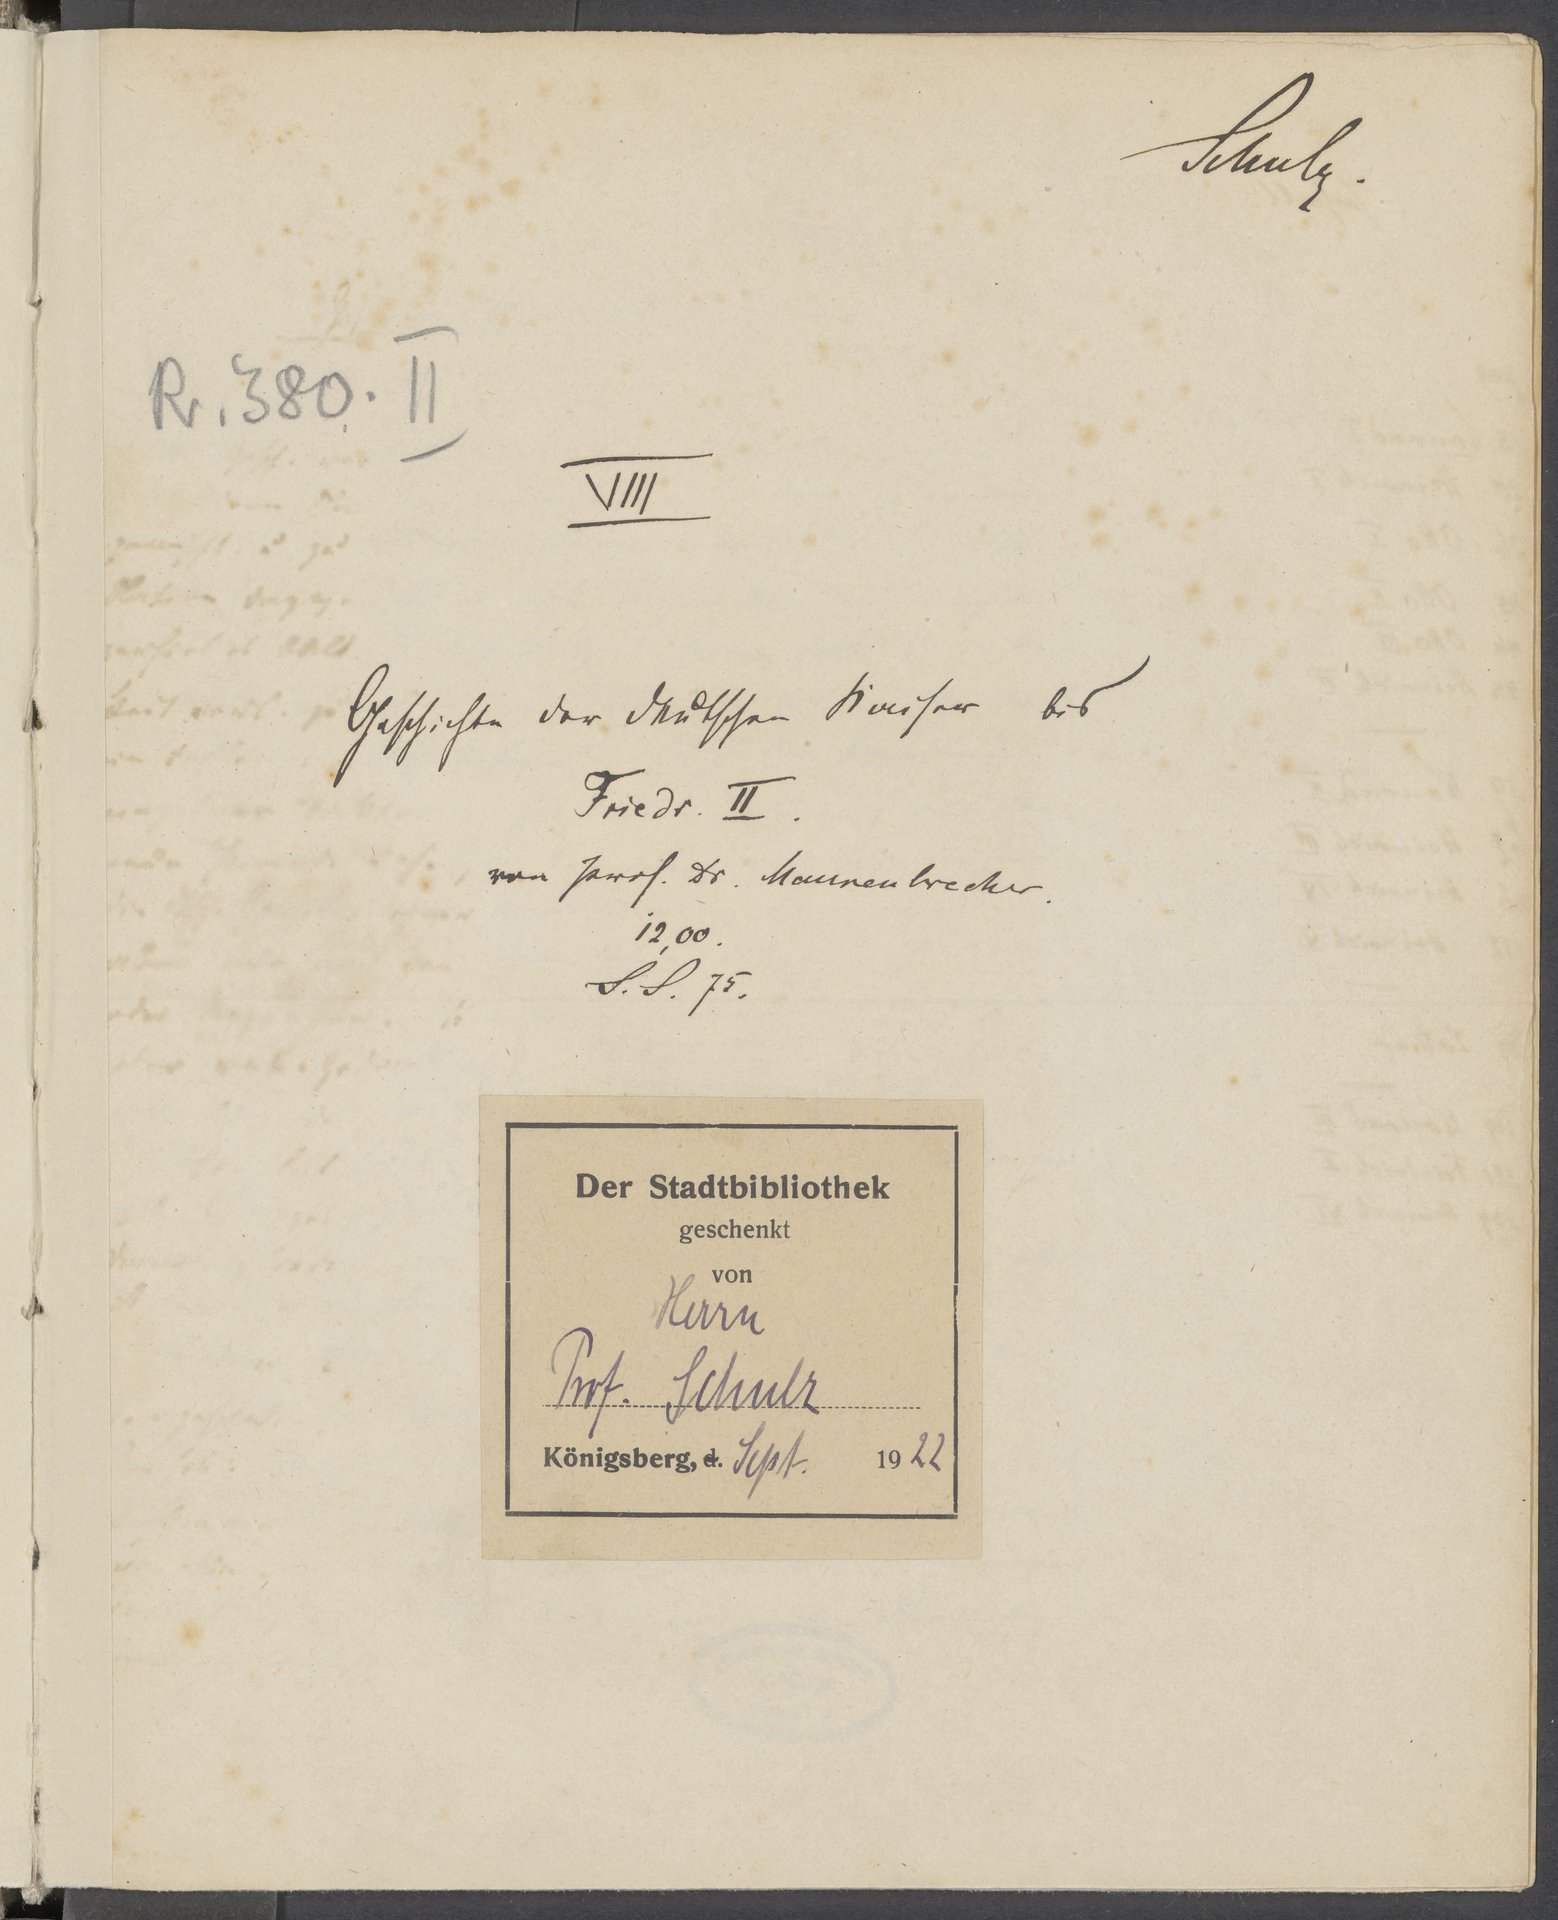 Schulz.
R. 380. II
VIII
Geschichte der deutschen Kaiser bis
Friedr. II.
von Prof. Dr. Maurenbrecher.
12,00.
S. S. 75.
Der Stadtbibliothek
geschenkt
von
Herrn
Prof. Schulz
Königsberg, d. Sept. 1922